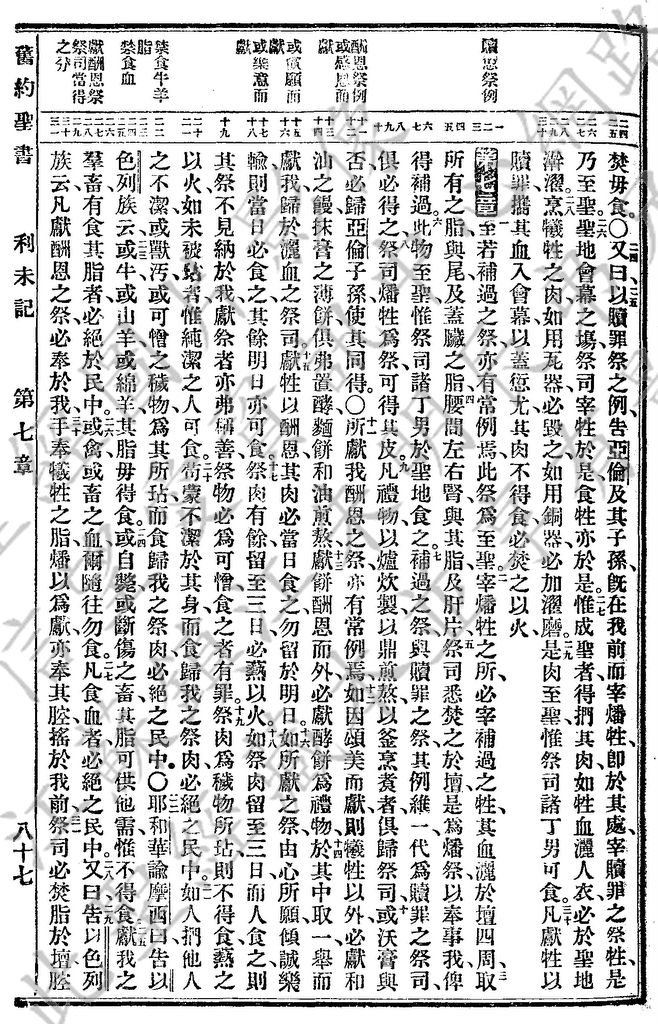 贖愆祭例
酬恩祭例
或感恩而
獻
或償願而
或樂意而
獻
禁食牛羊
脂
禁食血
獻酬恩祭
祭司當得
之分
焚毋食〇又曰以贖罪祭之例告亞倫及其子孫旣在我前而宰燔牲卽於其處宰贖罪之祭牲是
乃至聖聖地會幕之場祭司宰牲於是食牲亦於是惟成聖者得捫其肉如牲血灑人衣必於聖地
澣濯烹犧牲之肉如用瓦器必毀之如用銅器必加濯磨是肉至聖惟祭司諸丁男可食凡獻牲以
贖罪攜其血入會幕以蓋愆尤其肉不得食必焚之以火
第七章至若補過之祭亦有常例焉此祭爲至聖宰燔牲之所必宰補過之牲其血灑於壇四周取
所有之脂與尾及蓋臟之脂腰間左右腎與其脂及肝片祭司悉焚之於壇是爲燔祭以奉事我俾
得補過此物至聖惟祭司諸丁男於聖地食之補過之祭與贖罪之祭其例維一代爲贖罪之祭司
俱必得之祭司燔牲爲祭可得其皮凡禮物以爐炊製以鼎煎熬以釜烹煮者俱歸祭司或沃膏與
否必歸亞倫子孫使其同得〇所獻我酬恩之祭亦有常例焉如因頌美而獻則犧牲以外必獻和
油之饅抹膏之薄餅俱弗置酵麵餅和油煎熬獻餅酬恩而外必獻酵餅爲禮物於其中取一舉而
獻我歸於灑血之祭司獻牲以酬恩其肉必當日食之勿留於明日如所獻之祭由心所願傾誠樂
輸則當日必食之其餘明日亦可食祭肉有餘留至三日必爇以火如祭肉留至三日而人食之則
其祭不見納於我獻祭者亦弗稱善祭物必爲可憎食之者有罪祭肉爲穢物所玷則不得食爇之
以火如未被玷者惟純潔之人可食苟蒙不潔於其身而食歸我之祭肉必絕之民中如人捫他人
之不潔或獸汚或可憎之穢物爲其所玷而食歸我之祭肉必絕之民中〇耶和華諭摩西曰告以
色列族云或牛或山羊或綿羊其脂毋得食或自斃或斷傷之畜其脂可供他需惟不得食獻我之
羣畜有食其脂者必絕於民中或禽或畜之血爾隨往勿食凡食血者必絕之民中又曰告以色列
族云凡獻酬恩之祭必奉於我手奉犧牲之脂燔以爲獻亦奉其腔搖於我前祭司必焚脂於壇腔
舊約聖書 利未記 第七章 八十七